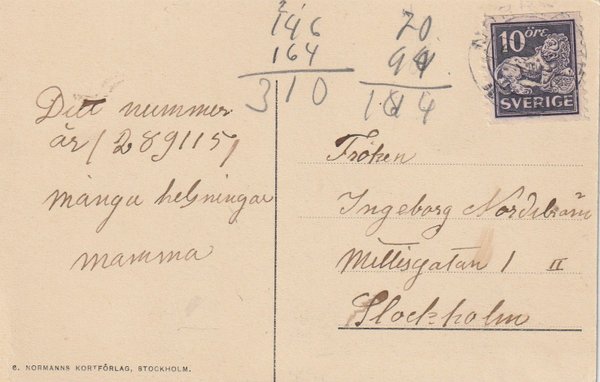 146
164
310
70
94
164
10 ÖRE
SVERIGE
Ditt nummer
är / 289115 /
många helsningar
mamma
Fröken
Ingeborg
Millisgatan 1 II
Stockholm
6. NORMANNS KORTFÖRLAG, STOCKHOLM.